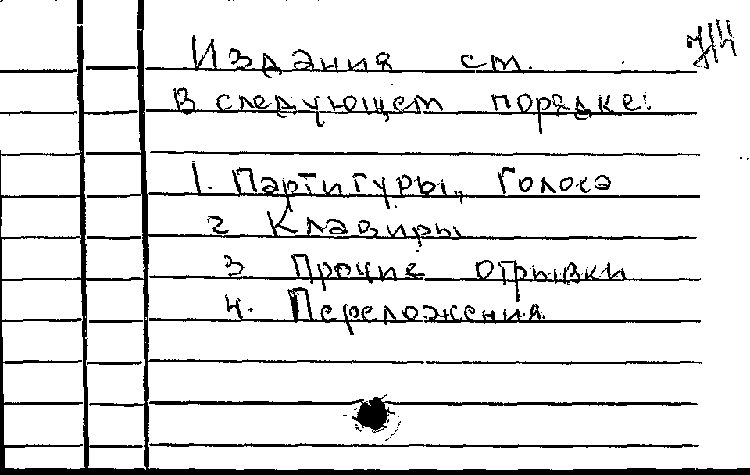 Издания см.
в следующем порядке:
1. Партитуры, Голоса
2 Клавиры
3 Прочие отрывки
4. Переложения